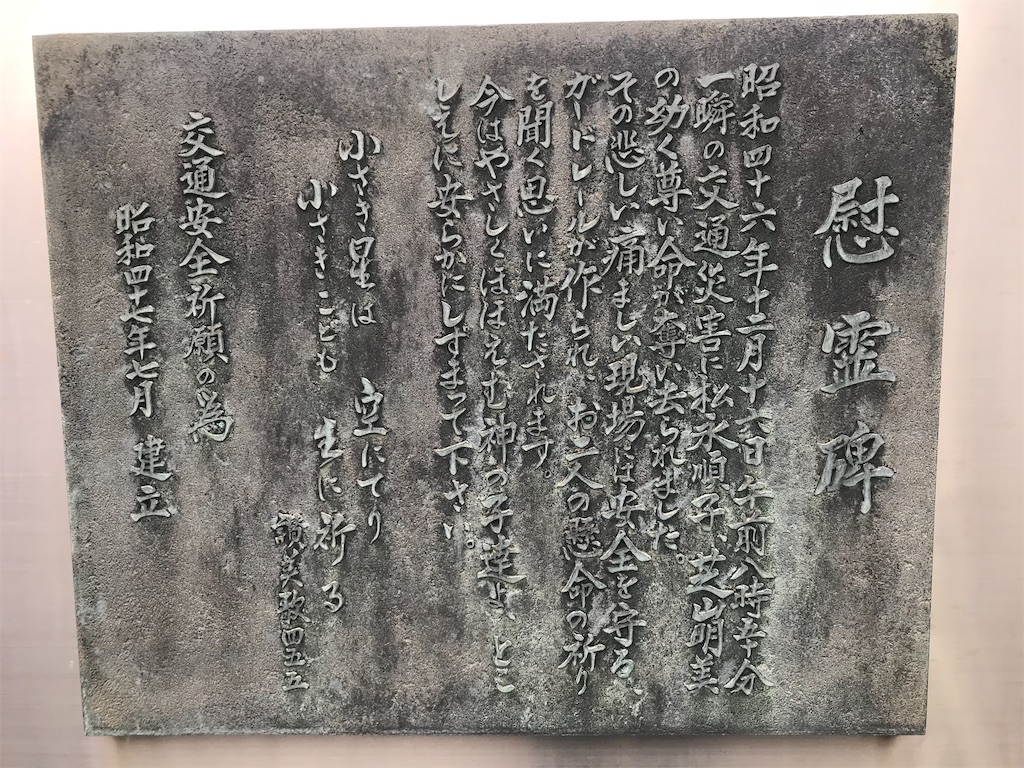 慰霊碑
昭和四十六年十二月十六日午前八時五十分
一瞬の交通災害に松永順子、芝山明美
の幼く尊い命が奪い去られました。
その悲しい痛ましい現場には安全を守る、
ガードレールが作られ、お二人の懸命の祈り
を聞く思いに満たされます。
今はやさしくほほえむ神の子達よ、とこ
しえに安らかにしずまって下さい。
小さき星は 空にてり
小さきこども 主に祈る
讃美歌四五五
交通安全祈願の為
昭和四十七年七月 建立